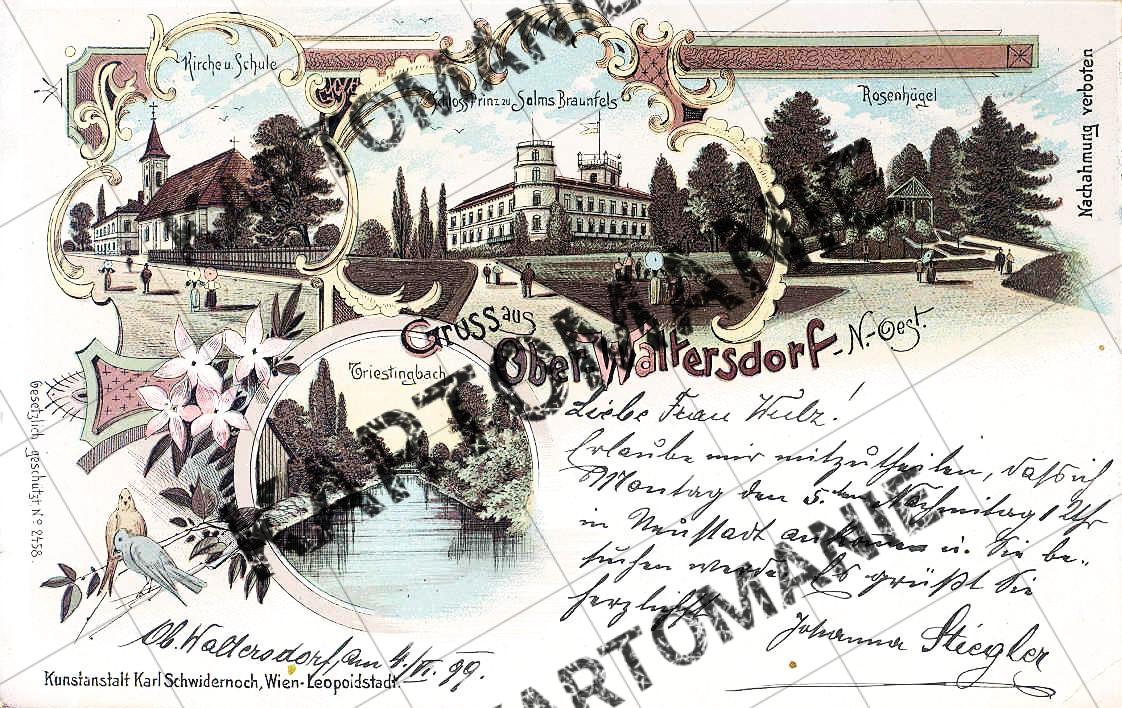 Kirche u. Schule
Schloss Prinz zu Salms Braunfels
Rosenhügel
Nachahmung verboten
Gruss aus
Ober-Waltersdorf - N.-Oest.
Triestingbach
Gesetzlich geschützt No 2458.
Liebe Frau Wulz!
Erlaube mir mitzutheilen, daß ich
Montag den 5ten Nachmitag 1 Uhr
in Neustadt ankomme u. Sie be-
suchen werde. Es grüßt Sie
herzlichst
Johanna Stiegler
Ob. Waltersdorf, am 4./VI. 99.
Kunstanstalt Karl Schwidernoch, Wien-Leopoldstadt.
KARTOMANIE
KARTOMANIE
KARTOMANIE
KARTOMANIE